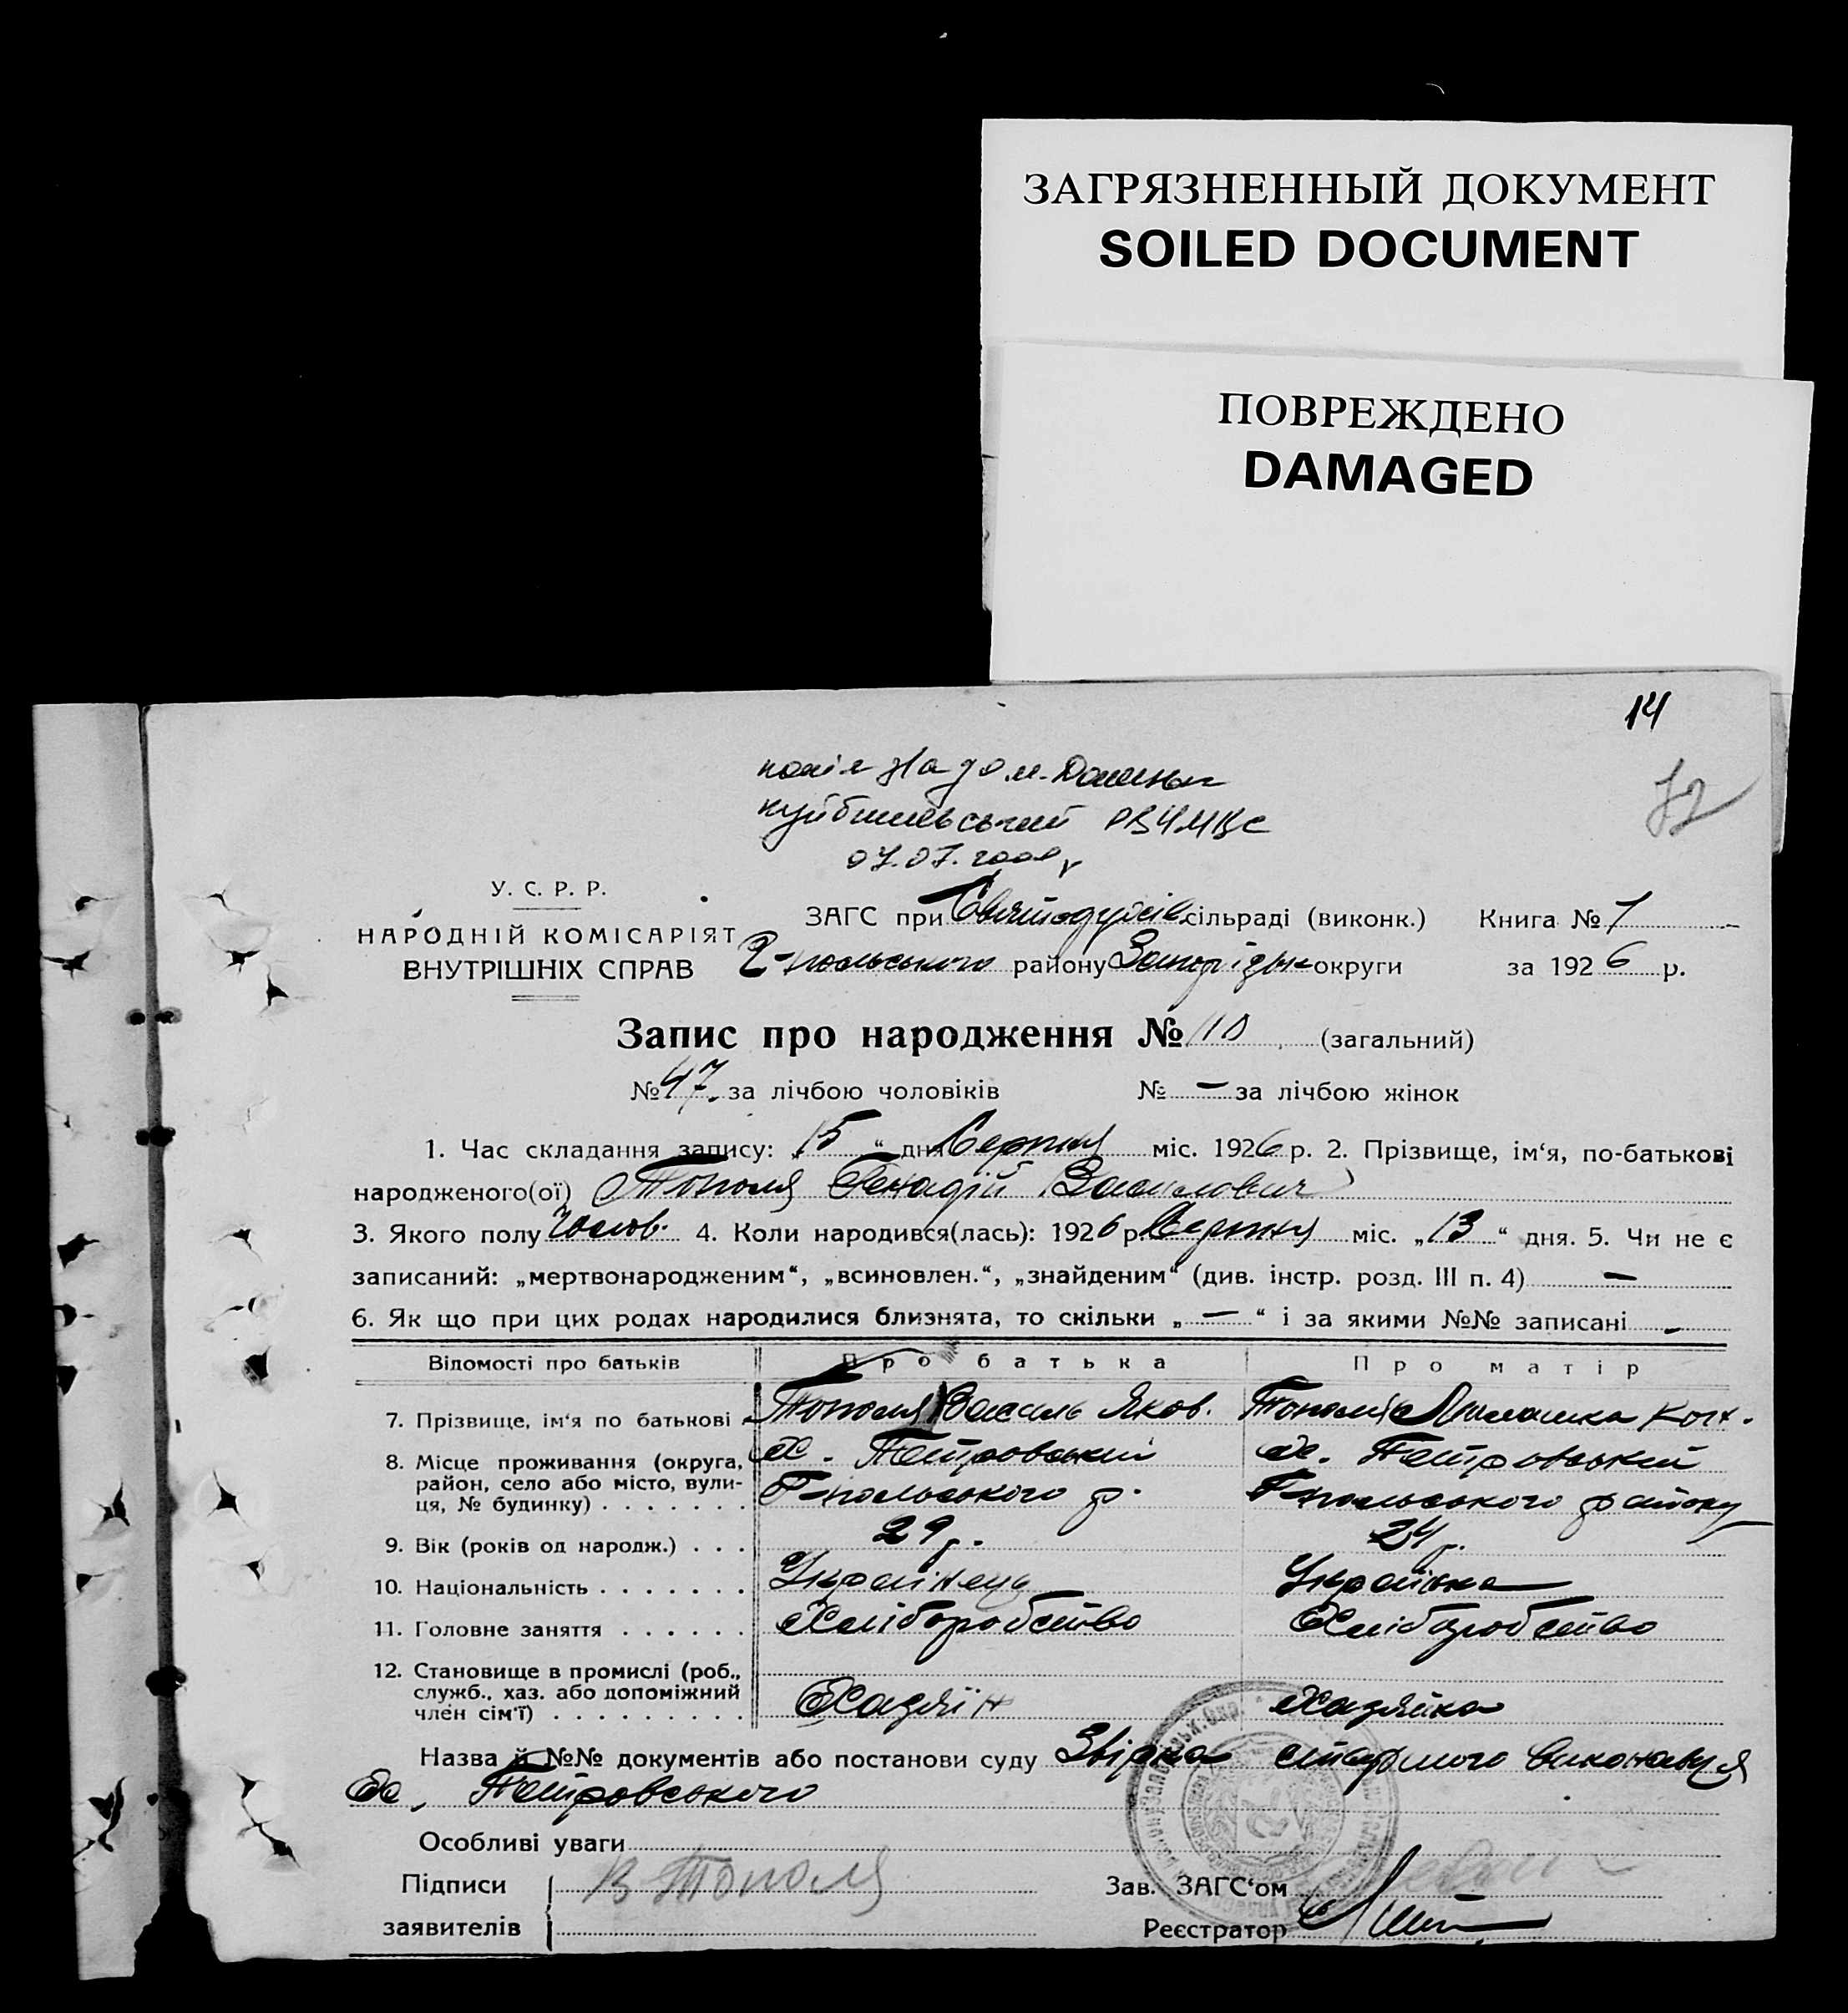 ЗАГРЯЗНЕННЫЙ ДОКУМЕНТ
SOILED DOCUMENT
ПОВРЕЖДЕНО
DAMAGED
14
72
копія
07.07.
У. С. Р. Р.
НАРОДНІЙ КОМІСАРІЯТ
ВНУТРІШНІХ СПРАВ
ЗАГС при Святодухів. сільраді (виконк.) Книга № 1
Г-польського району Запорізьк округи за 1926 р.
Запис про народження № 110 (загальний)
№ 47. за лічбою чоловіків № — за лічбою жінок
1. Час складання запису: „15“ дня Серпня міс. 1926 р. 2. Прізвище, ім‘я, по-батькові
народженого(ої) Тополя Генадій Василович
3. Якого полу Чолов. 4. Коли народився(лась): 1926 р Серпня міс. „13“ дня. 5. Чи не є
записаний: „мертвонародженим“, „всиновлен.“, „знайденим“ (див. інстр. розд. III п. 4) —
6. Як що при цих родах народилися близнята, то скільки „—“ і за якими №№ записані —
Відомості про батьків Про батька Про матір
7. Прізвище, ім‘я по батькові Тополя Василь Яков. Тополя
8. Місце проживання (округа, район, село або місто, вулиця, № будинку) Х. Петровський Х. Петровський
Г-польського р. Г-польського району
9. Вік (років од народж.) 29 р. 24 р.
10. Національність Українець Українка
11. Головне заняття Хліборобство Хліборобство
12. Становище в промислі (роб., служб., хаз. або допоміжний член сім‘ї) Хазяїн Хазяйка
Назва й №№ документів або постанови суду Звірка виконавця
Х. Петровського
Особливі уваги
Підписи
заявителів
В Тополя
Зав. ЗАГС‘ом
Реєстратор